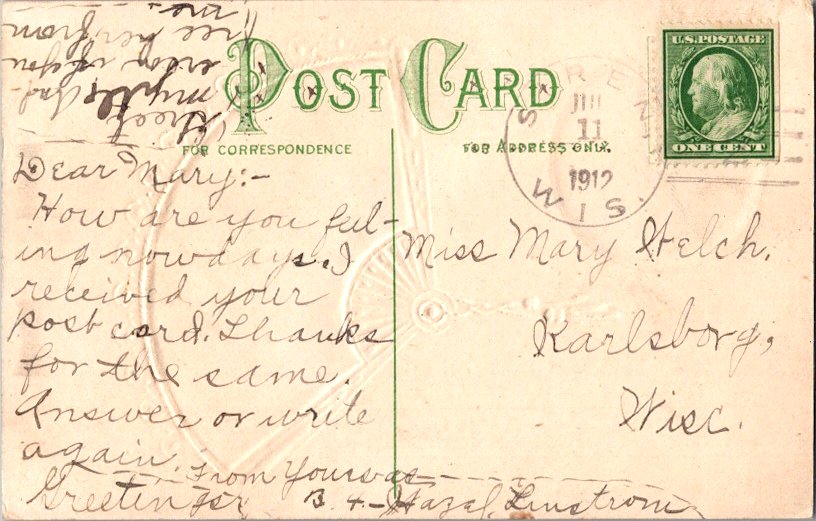 POST CARD
FOR CORRESPONDENCE
FOR ADDRESS ONLY.
U.S. POSTAGE
ONE CENT
S REN
JUN
11
1912
WIS.
Dear Mary:-
How are you feel-
ing nowdays. I
received your
post card. Thanks
for the same.
Answer or write
again.
From Yours as
Greetings B 4 - Hazel Linstrom
Miss Mary Welch.
Karlsborg,
Wisc.
Greet
Myrtle and
when if you
see her from
me.